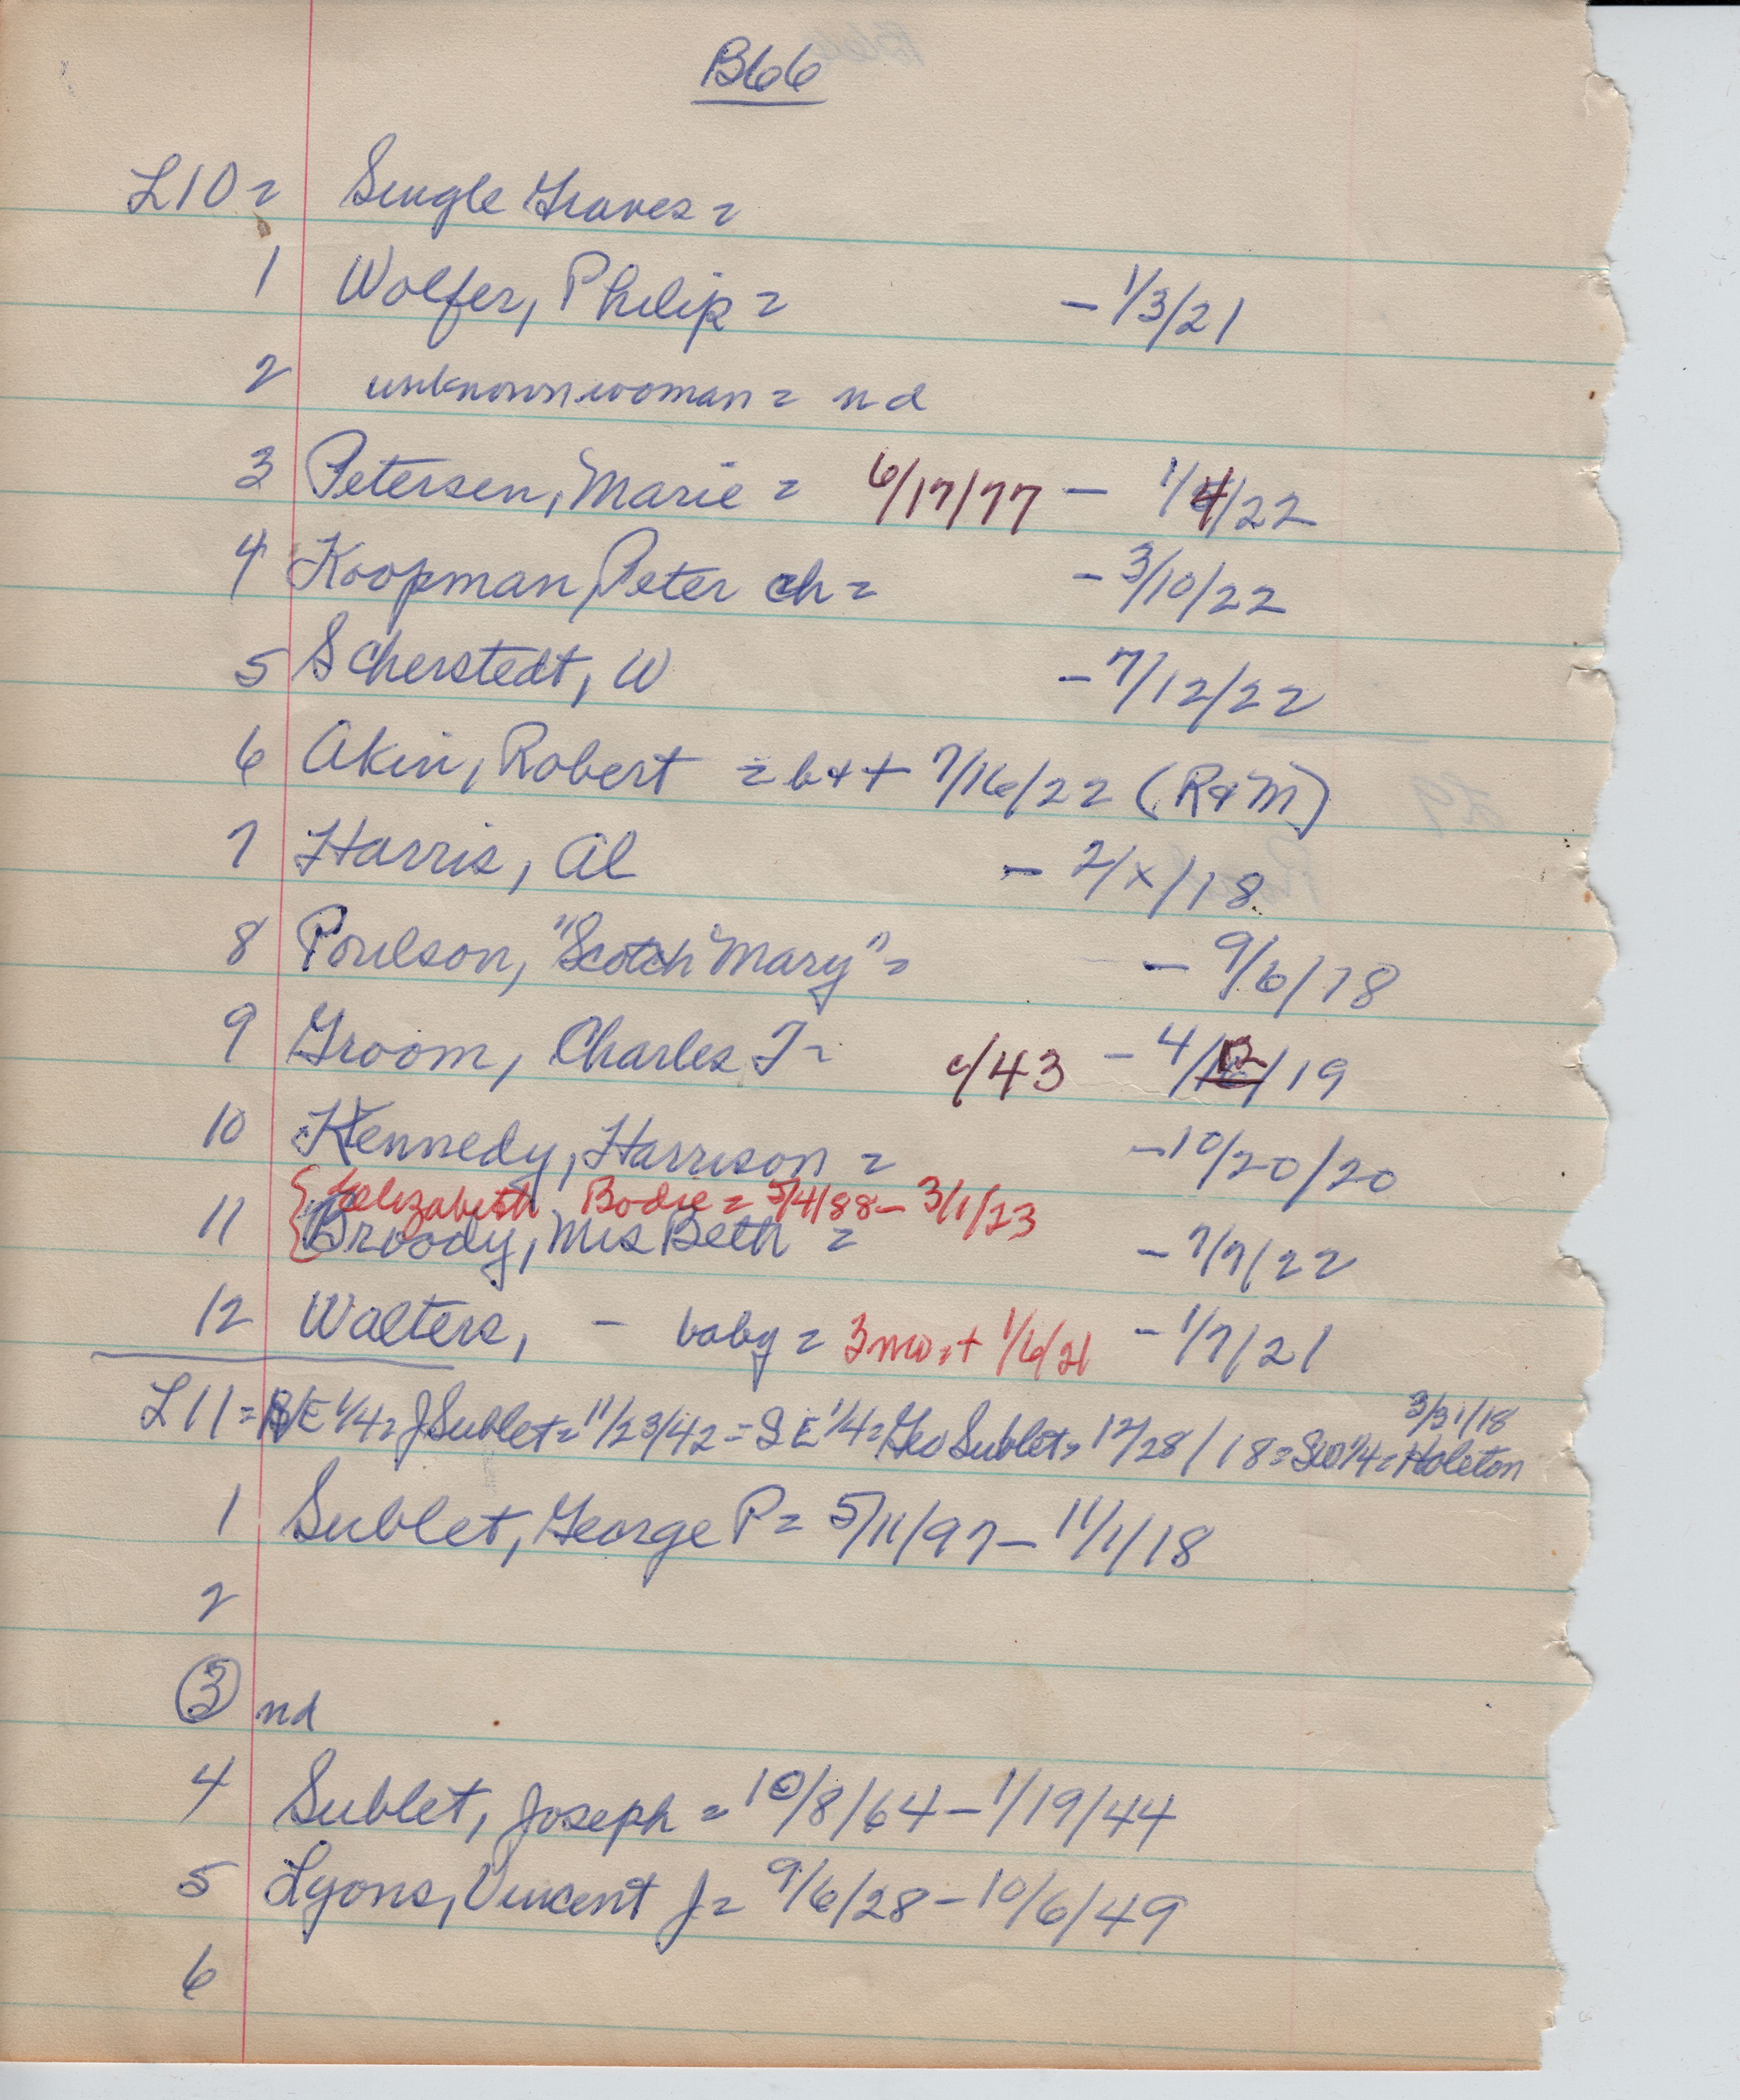 B66
L10 = Single Graves =
1 Wolfer, Philip = - 1/3/21
2 unknown woman = nd
3 Petersen, Marie = 6/17/77 - 1/4/22
4 Koopman, Peter ch = - 3/10/22
5 Scherstedt, W - 7/12/22
6 Akin, Robert = b + + 7/16/22 (R & M)
7 Harris, Al - 2/x/18
8 Poulson, "Scotch Mary" = - 9/6/18
9 Groom, Charles T = c/43 - 4/12/19
10 Kennedy, Harrison = - 10/20/20
Elizabeth Bodie = 5/4/88 - 3/1/23
11 Broody, Mrs Beth = - 7/7/22
12 Walters, - baby = 3 mo. + 1/6/21 - 1/7/21
3/31/18
L11 = NE 1/4 = J Sublet = 11/23/42 = SE 1/4 = Geo Sublet = 12/28/18 = SW 1/4 = Holston
1 Sublet, George P = 5/11/97 - 11/1/18
2
3 nd
4 Sublet, Joseph = 10/8/64 - 1/19/44
5 Lyons, Vincent J = 9/6/28 - 10/6/49
6